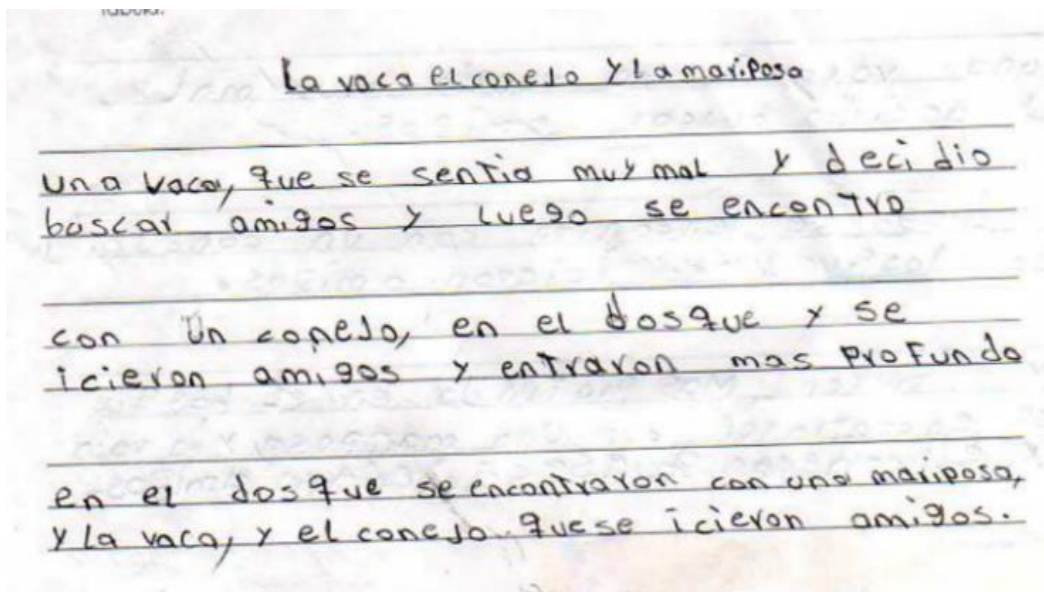 La vaca el conejo y la mariposa
una vaca, que se sentia muy mal y decidio
buscar amigos y luego se encontro
con un conejo, en el dosque y se
icieron amigos y entraron mas profundo
en el dosque se encontraron con una mariposa,
y la vaca, y el conejo que se icieron amigos.